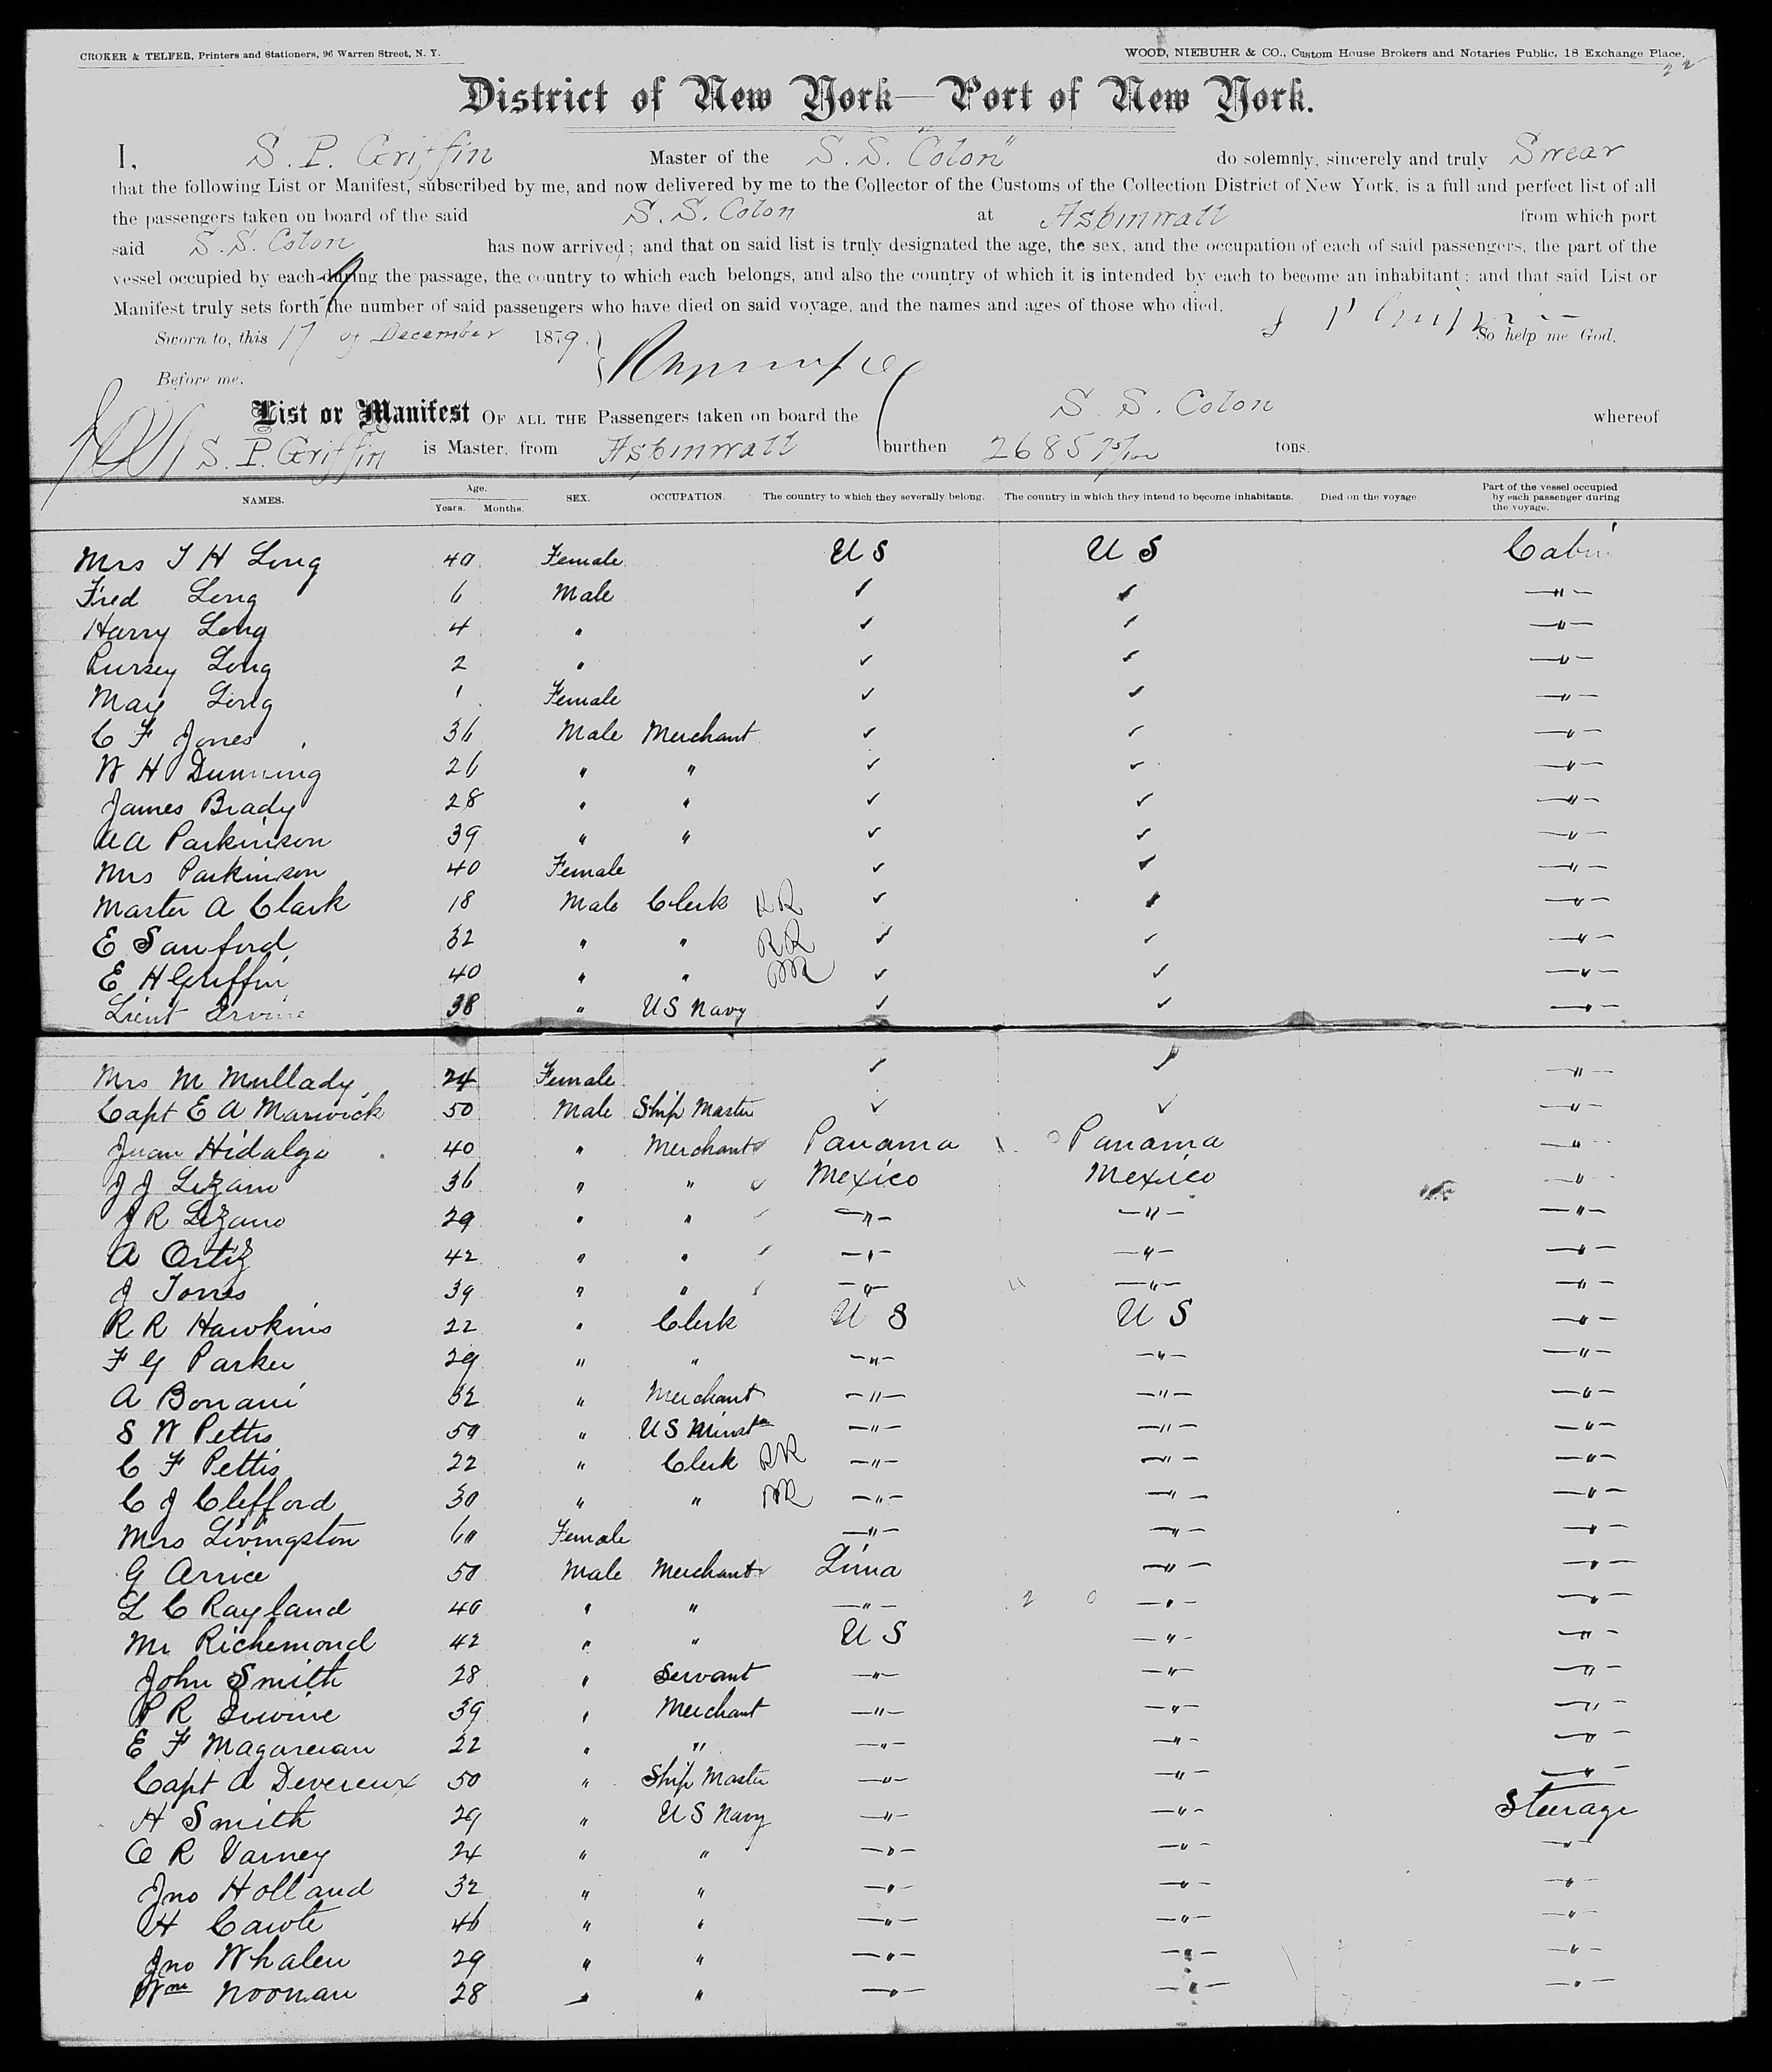 CROKER & TELFER, Printers and Stationers, 96 Warren Street, N. Y. WOOD, NIEBUHR & CO., Custom House Brokers and Notaries Public, 18 Exchange Place.
District of New York—Port of New York.
I, S. P. Griffin Master of the S. S. "Colon" do solemnly, sincerely and truly Swear
that the following List or Manifest, subscribed by me, and now delivered by me to the Collector of the Customs of the Collection District of New York, is a full and perfect list of all
the passengers taken on board of the said S. S. Colon at Aspinwall from which port
said S. S. Colon has now arrived; and that on said list is truly designated the age, the sex, and the occupation of each of said passengers, the part of the
vessel occupied by each during the passage, the country to which each belongs, and also the country of which it is intended by each to become an inhabitant; and that said List or
Manifest truly sets forth the number of said passengers who have died on said voyage, and the names and ages of those who died.
Sworn to, this 17 of December 1879. So help me God.
Before me,
List or Manifest OF ALL THE Passengers taken on board the S. S. Colon whereof
S. P. Griffin is Master, from Aspinwall burthen 2685 75/100 tons.
NAMES. Age. Years. Months. SEX. OCCUPATION. The country to which they severally belong. The country in which they intend to become inhabitants. Died on the voyage. Part of the vessel occupied by each passenger during the voyage.
Mrs T H Long 40 Female U S U S Cabin
Fred Long 6 Male ✓ ✓ —"—
Harry Long 4 " ✓ ✓ —"—
Pursey Long 2 " ✓ ✓ —"—
May Long 1 Female ✓ ✓ —"—
C F Jones 36 Male Merchant ✓ ✓ —"—
W H Dunning 26 " " ✓ ✓ —"—
James Brady 28 " " ✓ ✓ —"—
A A Parkinson 39 " " ✓ ✓ —"—
Mrs Parkinson 40 Female ✓ ✓ —"—
Master A Clark 18 Male Clerk RR ✓ ✓ —"—
E Sanford 32 " " RR ✓ ✓ —"—
E H Griffin 40 " " RR ✓ ✓ —"—
Lieut Irvine 38 " US Navy ✓ ✓ —"—
Mrs M Mullady 24 Female ✓ ✓ —"—
Capt E A Marwick 50 Male Ship Master ✓ ✓ —"—
Juan Hidalgo 40 " Merchant Panama Panama —"—
J J Lizano 36 " " Mexico Mexico —"—
J R Lizano 29 " " —"— —"— —"—
A Ortiz 42 " " —"— —"— —"—
J Torres 39 " " —"— —"— —"—
R R Hawkins 22 " Clerk U S U S —"—
F G Parker 29 " " —"— —"— —"—
A Bonani 32 " Merchant —"— —"— —"—
S W Pettis 59 " US Minister —"— —"— —"—
C F Pettis 22 " Clerk RR —"— —"— —"—
C J Clifford 30 " " RR —"— —"— —"—
Mrs Livingston 60 Female —"— —"— —"—
G Arrice 50 Male Merchant Lima —"— —"—
L C Rayland 40 " " —"— —"— —"—
Mr Richemond 42 " " U S —"— —"—
John Smith 28 " Servant —"— —"— —"—
P R Irwine 39 " Merchant —"— —"— —"—
E F Magareian 22 " " —"— —"— —"—
Capt A Devereux 50 " Ship Master —"— —"— —"—
H Smith 29 " US Navy —"— —"— Steerage
O R Varney 24 " " —"— —"— —"—
Jno Holland 32 " " —"— —"— —"—
H Cawte 46 " " —"— —"— —"—
Jno Whalen 29 " " —"— —"— —"—
Wm Noonan 28 " " —"— —"— —"—